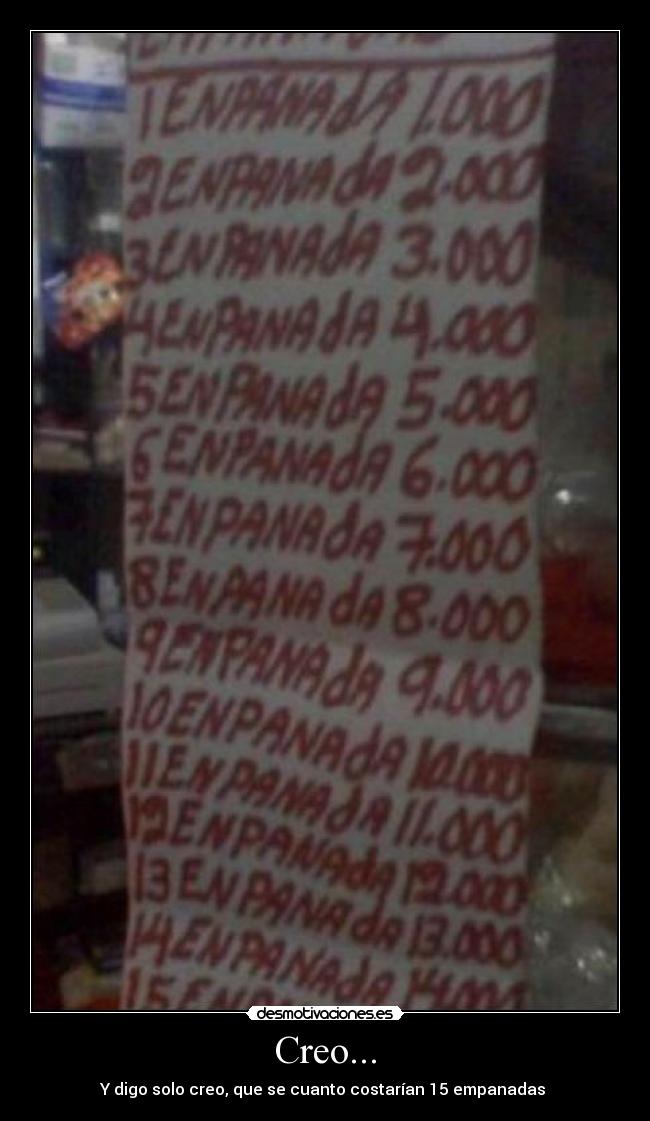 1 ENPANAdA 1.000
2 ENPANAdA 2.000
3 ENPANAdA 3.000
4 ENPANAdA 4.000
5 ENPANAdA 5.000
6 ENPANAdA 6.000
7 ENPANAdA 7.000
8 ENPANAdA 8.000
9 ENPANAdA 9.000
10 ENPANAdA 10.000
11 ENPANAdA 11.000
12 ENPANAdA 12.000
13 ENPANAdA 13.000
14 ENPANAdA 14.000
15
desmotivaciones.es
Creo...
Y digo solo creo, que se cuanto costarían 15 empanadas